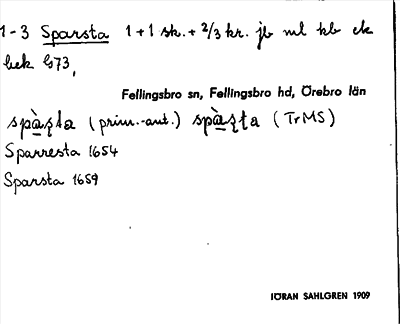 1-3 Sparsta 1+1 sk. + 2/3 kr. jb ml kb ek
bek G73,
Fellingsbro sn, Fellingsbro hd, Örebro län
spàʂta (prim.-ant.) spàʂta (TrMS)
Sparresta 1654
Sparsta 1659
IÖRAN SAHLGREN 1909